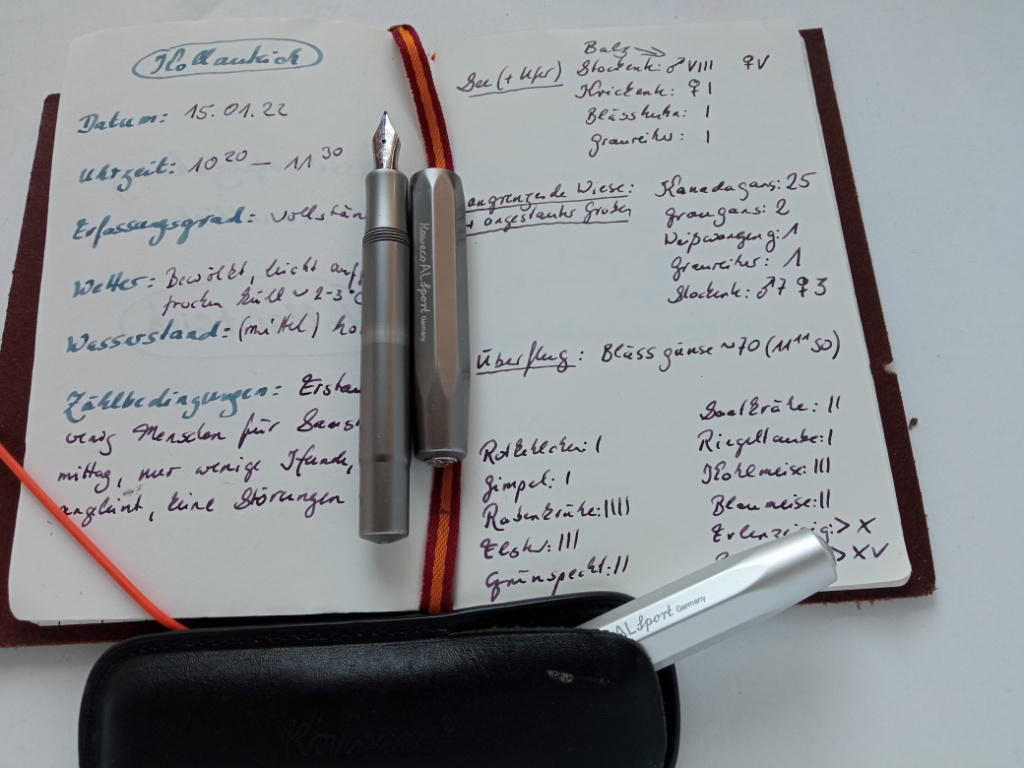 Hollanteich
Datum: 15.01.22
Uhrzeit: 10 20 – 11 30
Erfassungsgrad: vollstän
Wetter: Bewölkt, leicht auf
trocken kühl ~ 2-3°C
Wasserstand: (mittel) ho
Zählbedingungen: Erstau
wenig Menschen für Sams
mittag, nur wenige Hunde,
angeleint, keine Störungen
Balz →
See (+ Ufer) Stockente: ♂ VIII ♀ V
Krickente: ♀ I
Blässhuhn: I
Graureiher: I
angrenzende Wiese: Kanadagans: 25
+ angestauter Graben Graugans: 2
Weißwangeng: 1
Graureiher: 1
Stockente: ♂ 7 ♀ 3
Überflug: Blässgänse ~70 (11 11 SO)
Saatkrähe: II
Rotkehlchen: I Ringeltaube: I
Gimpel: I Kohlmeise: III
Rabenkrähe: IIII Blaumeise: II
Elster: III Erlenzeisig: > X
Grünspecht: II > XV
Kaweco AL Sport Germany
AL Sport Germany
Kaweco